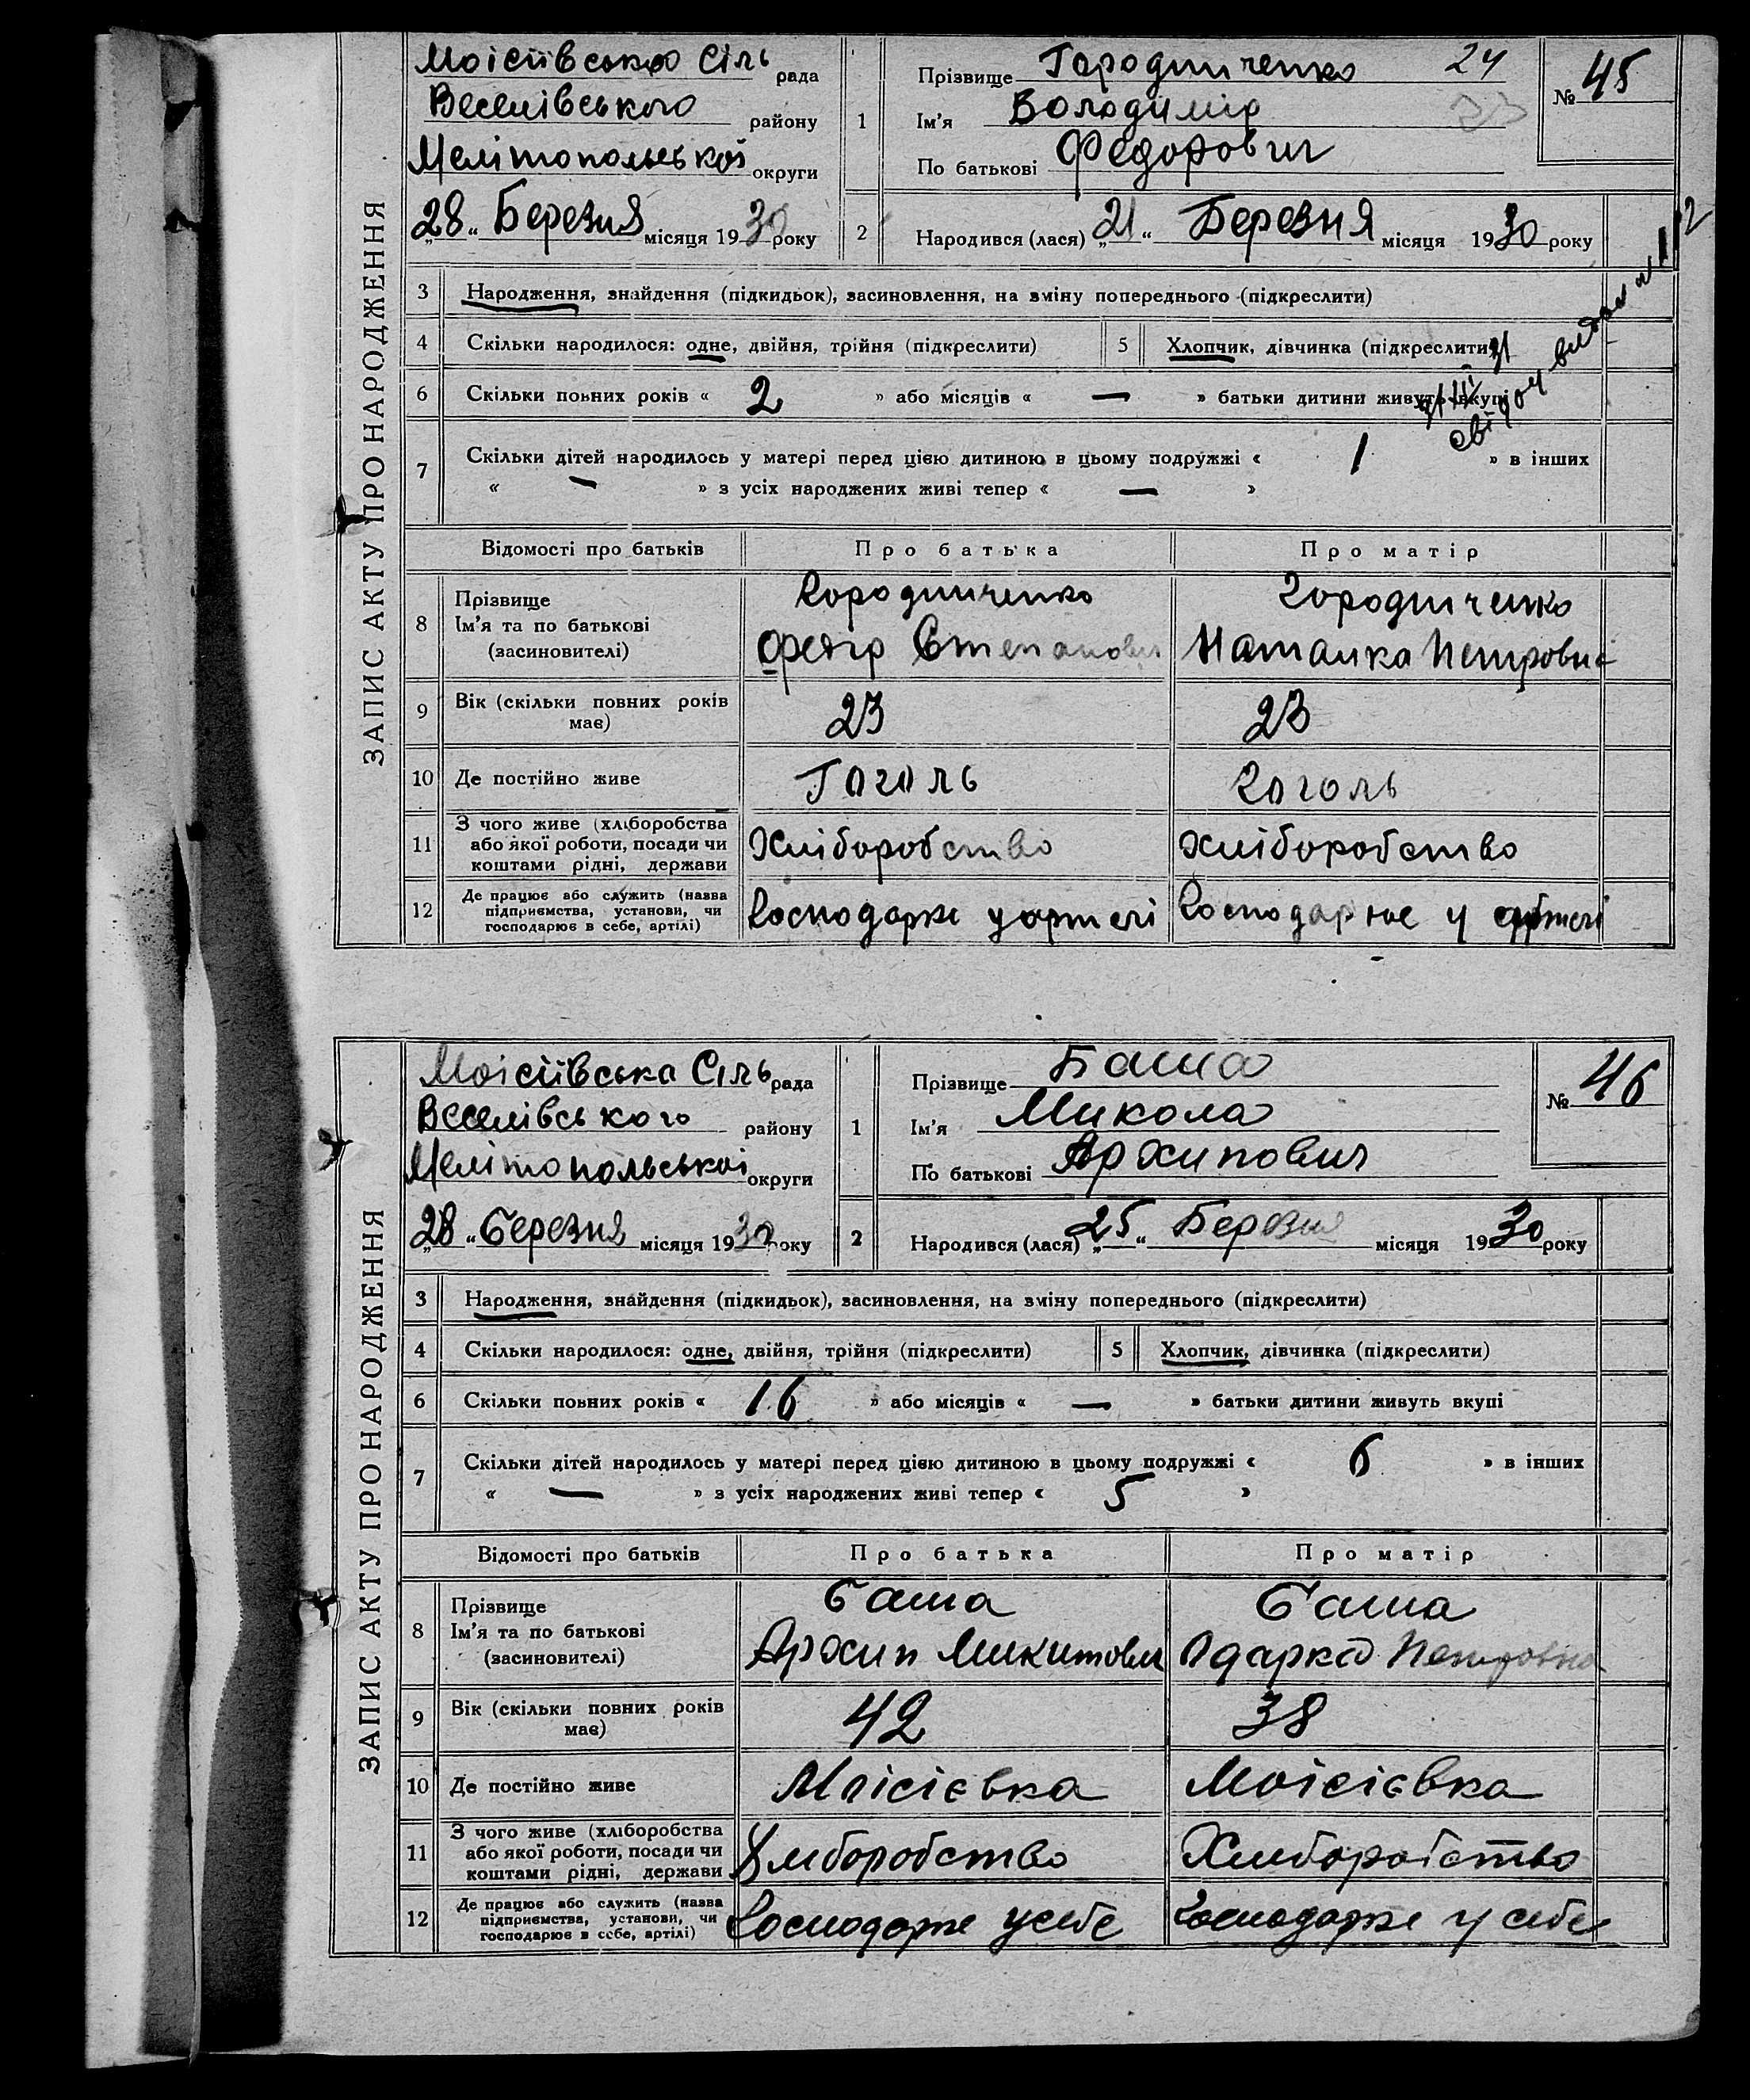 ЗАПИС АКТУ ПРО НАРОДЖЕННЯ
Моісіївська Сіль рада
Веселівського району
Мелітопольської округи
„28“ Березня місяця 1930 року
1 Прізвище Городниченко 24
Ім'я Володимір 23
По батькові Федорович
№ 45
2 Народився (лася) „21“ Березня місяця 1930 року
3 Народження, знайдення (підкидьок), засиновлення, на зміну попереднього (підкреслити)
4 Скільки народилося: одне, двійня, трійня (підкреслити) 5 Хлопчик, дівчинка (підкреслити)
6 Скільки повних років « 2 » або місяців « — » батьки дитини живуть вкупі
7 Скільки дітей народилось у матері перед цією дитиною в цьому подружжі « 1 » в інших
« — » з усіх народжених живі тепер « — »
Відомості про батьків Про батька Про матір
8 Прізвище Городниченко Городниченко
Ім'я та по батькові Федір Степанович Наталка Петровна
(засиновителі)
9 Вік (скільки повних років 23 23
має)
10 Де постійно живе Гоголь Гоголь
11 З чого живе (хліборобства
або якої роботи, посади чи Хліборобство Хліборобство
коштами рідні, держави
12 Де працює або служить (назва
підприємства, установи, чи Господарює у артелі Господарює у артелі
господарює в себе, артілі)
ЗАПИС АКТУ ПРО НАРОДЖЕННЯ
Моісіївська Сіль рада
Веселівського району
Мелітопольської округи
„28“ Березня місяця 1930 року
1 Прізвище Баша
Ім'я Микола
По батькові Архипович
№ 46
2 Народився (лася) „25“ Березня місяця 1930 року
3 Народження, знайдення (підкидьок), засиновлення, на зміну попереднього (підкреслити)
4 Скільки народилося: одне, двійня, трійня (підкреслити) 5 Хлопчик, дівчинка (підкреслити)
6 Скільки повних років « 16 » або місяців « — » батьки дитини живуть вкупі
7 Скільки дітей народилось у матері перед цією дитиною в цьому подружжі « 6 » в інших
« — » з усіх народжених живі тепер « 5 »
Відомості про батьків Про батька Про матір
8 Прізвище Баша Баша
Ім'я та по батькові Архип Микитович Одарка Петровна
(засиновителі)
9 Вік (скільки повних років 42 38
має)
10 Де постійно живе Моісієвка Моісієвка
11 З чого живе (хліборобства
або якої роботи, посади чи Хлиборобство Хлиборобство
коштами рідні, держави
12 Де працює або служить (назва
підприємства, установи, чи Господарює у себе Господарює у себе
господарює в себе, артілі)